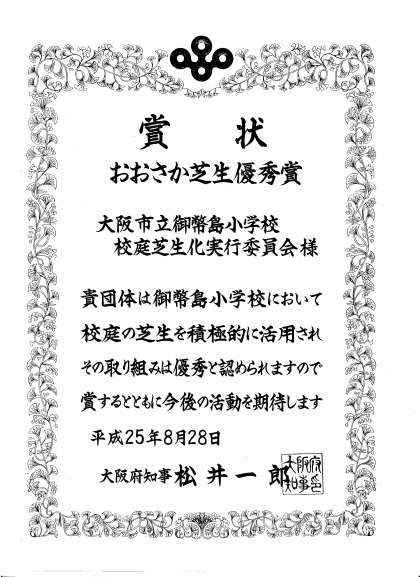 賞状
おおさか芝生優秀賞
大阪市立御幣島小学校
校庭芝生化実行委員会様
貴団体は御幣島小学校において
校庭の芝生を積極的に活用され
その取り組みは優秀と認められますので
賞するとともに今後の活動を期待します
平成25年8月28日
大阪府知事 松井一郎
大阪府
知事印